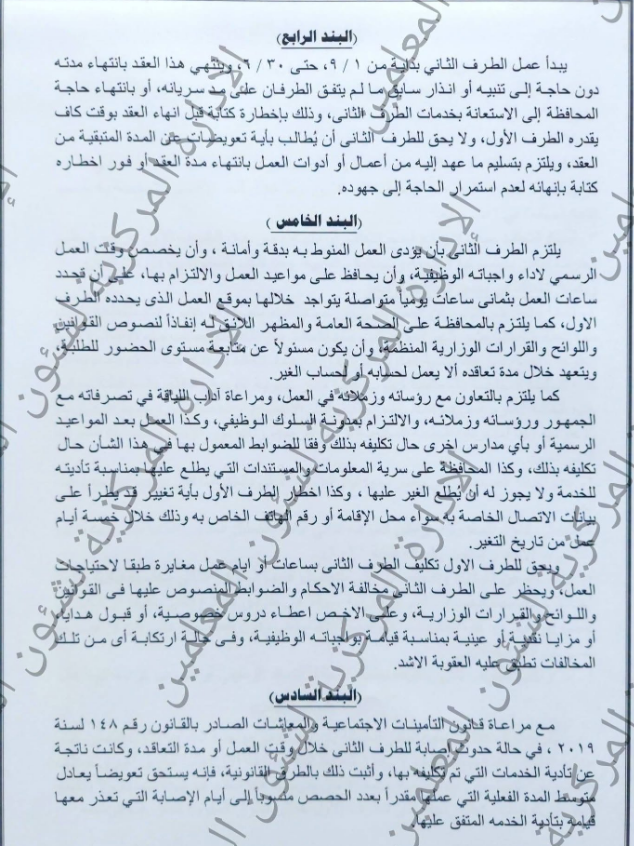 (البند الرابع)
يبدأ عمل الطرف الثاني بداية من ١ / ٩، حتى ٣٠ / ٦، وينتهي هذا العقد بانتهاء مدته
دون حاجة إلى تنبيه أو انذار سابق ما لم يتفق الطرفان على مد سريانه، أو بانتهاء حاجة
المحافظة إلى الاستعانة بخدمات الطرف الثانى، وذلك بإخطارة كتابة قبل انهاء العقد بوقت كاف
يقدره الطرف الأول، ولا يحق للطرف الثانى أن يُطالب بأية تعويضات عن المدة المتبقية من
العقد، ويلتزم بتسليم ما عهد إليه من أعمال أو أدوات العمل بانتهاء مدة العقد أو فور اخطاره
كتابة بإنهائه لعدم استمرار الحاجة إلى جهوده.
(البند الخامس)
يلتزم الطرف الثانى بأن يؤدى العمل المنوط به بدقة وأمانة ، وأن يخصص وقت العمل
الرسمي لاداء واجباته الوظيفية، وأن يحافظ على مواعيد العمل والالتزام بها، على أن تحدد
ساعات العمل بثمانى ساعات يومياً متواصلة يتواجد خلالها بموقع العمل الذى يحدده الطرف
الاول، كما يلتزم بالمحافظة على الصحة العامة والمظهر اللائق له إنفاذاً لنصوص القوانين
واللوائح والقرارات الوزارية المنظمة، وأن يكون مسئولاً عن متابعة مستوى الحضور للطلبة،
ويتعهد خلال مدة تعاقده ألا يعمل لحسابه أو لحساب الغير.
كما يلتزم بالتعاون مع رؤسائه وزملائه في العمل، ومراعاة آداب اللياقة في تصرفاته مع
الجمهور ورؤسائه وزملائه، والالتزام بمدونة السلوك الوظيفي، وكذا العمل بعد المواعيد
الرسمية أو بأي مدارس اخرى حال تكليفه بذلك وفقا للضوابط المعمول بها في هذا الشأن حال
تكليفه بذلك، وكذا المحافظة على سرية المعلومات والمستندات التي يطلع عليها بمناسبة تأديته
للخدمة ولا يجوز له أن يُطلع الغير عليها ، وكذا اخطار الطرف الأول بأية تغيير قد يطرأ على
بيانات الاتصال الخاصة به سواء محل الإقامة أو رقم الهاتف الخاص به وذلك خلال خمسة أيام
عمل من تاريخ التغير.
ويحق للطرف الاول تكليف الطرف الثانى بساعات أو ايام عمل مغايرة طبقا لاحتياجات
العمل، ويحظر على الطرف الثانى مخالفة الاحكام والضوابط المنصوص عليها فى القوانين
واللوائح والقرارات الوزارية، وعلى الاخص اعطاء دروس خصوصية، أو قبول هدايا،
أو مزايا نقدية أو عينية بمناسبة قيامة بواجباته الوظيفية، وفى حالة ارتكابة أى من تلك
المخالفات تطبق عليه العقوبة الاشد.
(البند السادس)
مع مراعاة قانون التأمينات الاجتماعية والمعاشات الصادر بالقانون رقم ١٤٨ لسنة
٢٠١٩ ، في حالة حدوث إصابة للطرف الثانى خلال وقت العمل أو مدة التعاقد، وكانت ناتجة
عن تأدية الخدمات التي تم تكليفه بها، وأثبت ذلك بالطرق القانونية، فإنه يستحق تعويضاً يعادل
متوسط المدة الفعلية التي عملها مقدراً بعدد الحصص منسوباً إلى أيام الإصابة التي تعذر معها
قيامه بتأدية الخدمه المتفق عليها.
الإدارة المركزية لشئون المعلمين